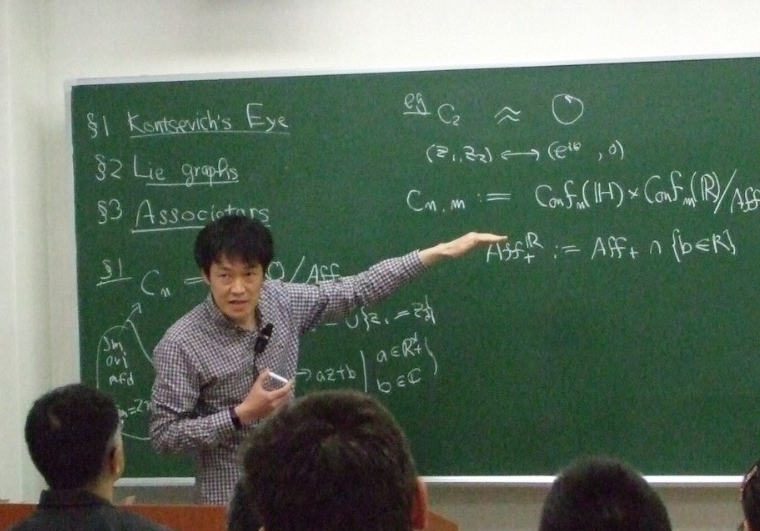 §1 Kontsevich's Eye
§2 Lie graphs
§3 Associators
§1 Cₙ = / Aff
= z
→ az+b | a∈ℝ₊
b∈ℂ
eg C₂ ≈ ○
(z₁,z₂) ⟷ (e^{iθ}, 0)
Cₙ,ₘ := Confₙ(ℍ) × Confₘ(ℝ)/Aff
Aff₊^ℝ := Aff₊ ∩ {b∈ℝ}